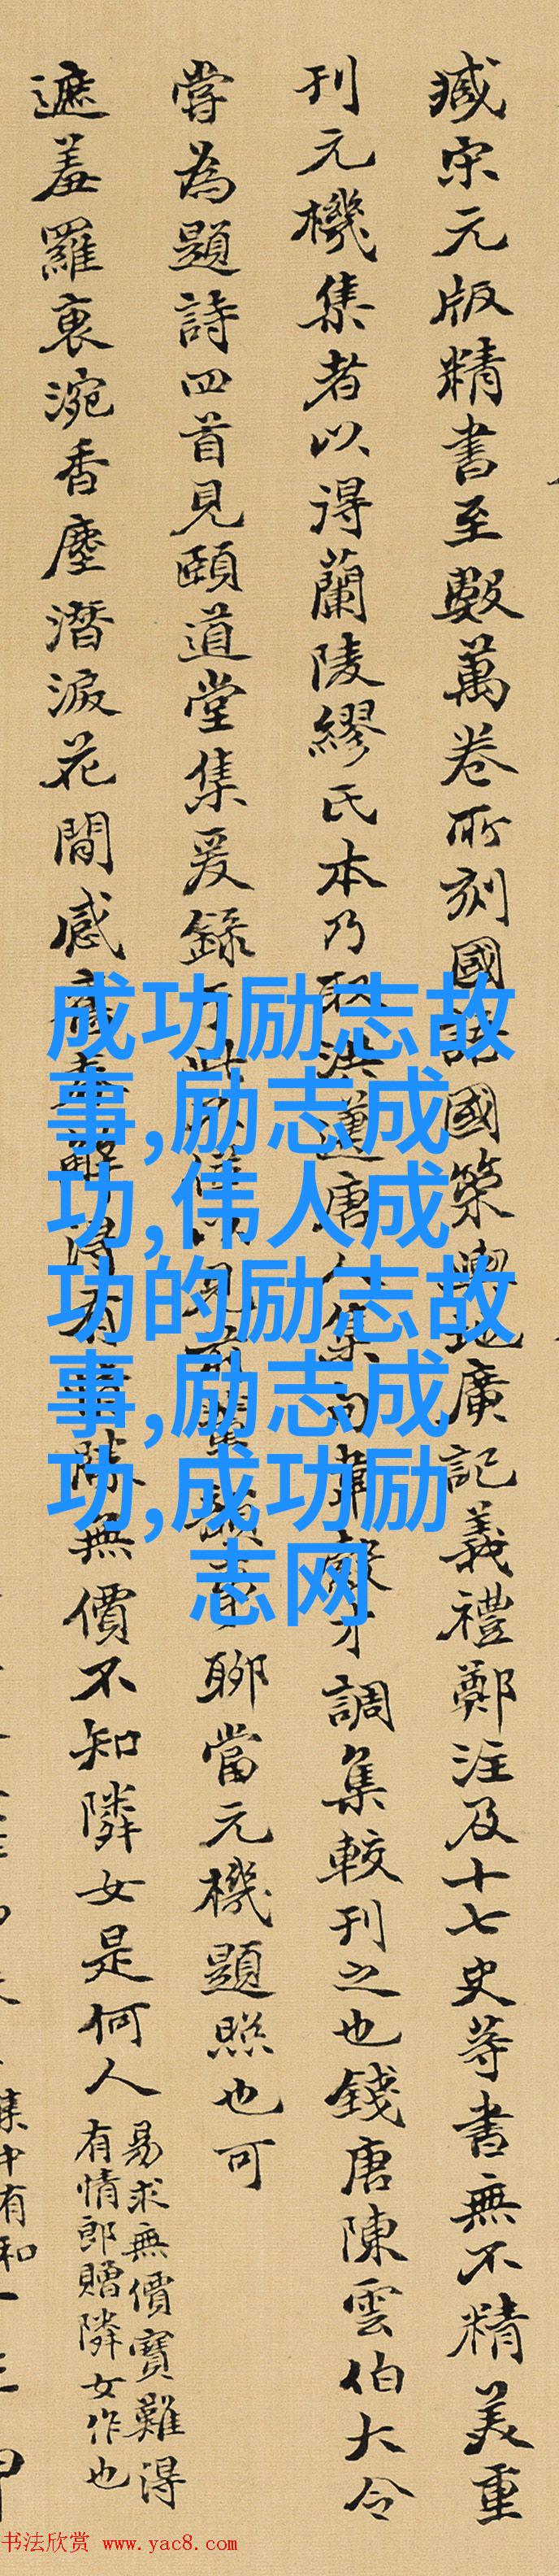 臧宋元版精書至數萬卷所刻國語國策輿地廣記義禮鄭注及十七史等書無不精美重
刊元機集者以得蘭陵繆氏本乃取洪邁唐人集句韋縠才調集較刊之也錢唐陳雲伯大令
嘗為題詩四首見頤道堂集爰錄于此
聊當元機題照也可
遮羞羅裏涴香塵潛淚花間感
無價不知隣女是何人
易求無價寶難得
有情郎贈隣女作也
集中有和
成功励志故
事,励志成
功,伟人成
功的励志故
事,励志成
功,成功励
志网
书法欣赏 www.yac8.com